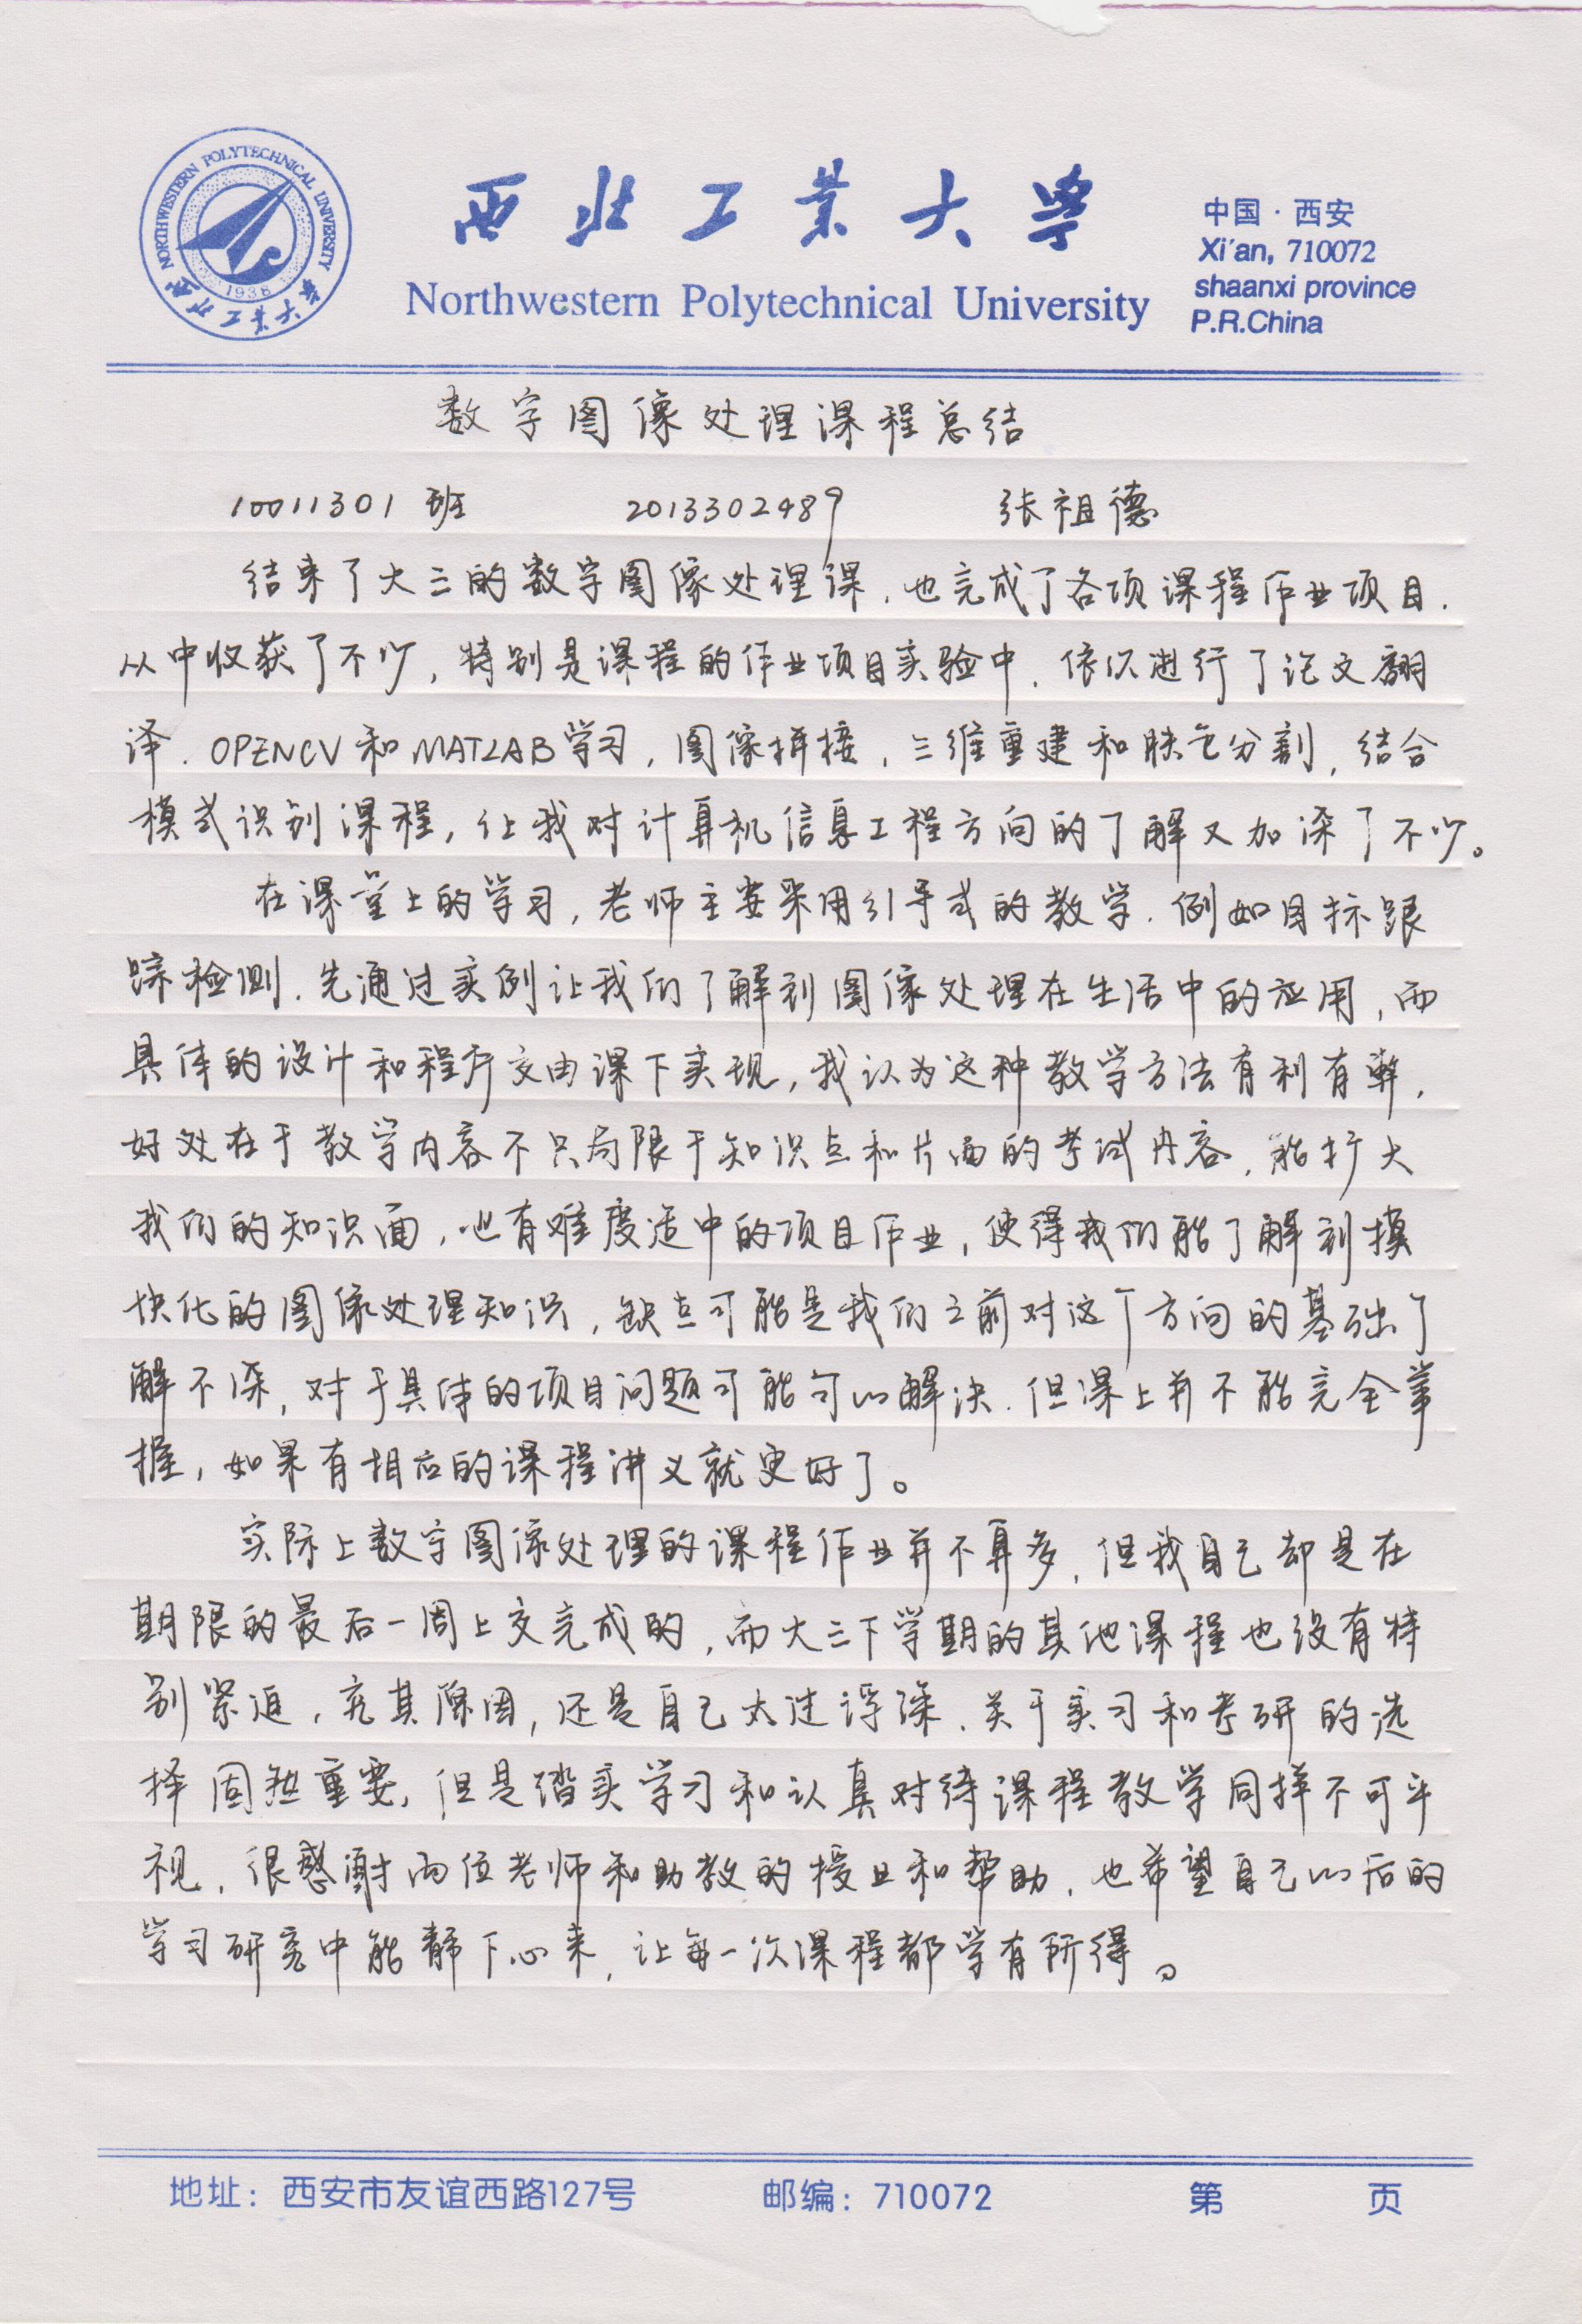 NORTHWESTERN POLYTECHNICAL UNIVERSITY
1938
西北工业大学
西北工业大学
Northwestern Polytechnical University
中国·西安
Xi'an, 710072
shaanxi province
P.R.China
数字图像处理课程总结
10011301班 2013302489 张祖德
结束了大三的数字图像处理课,也完成了各项课程作业项目.
从中收获了不少,特别是课程的作业项目实验中,依次进行了论文翻
译.OPENCV和MATLAB学习,图像拼接,三维重建和肤色分割,结合
模式识别课程,让我对计算机信息工程方向的了解又加深了不少。
在课堂上的学习,老师主要采用引导式的教学.例如目标跟
踪检测.先通过实例让我们了解到图像处理在生活中的应用,而
具体的设计和程序交由课下实现,我认为这种教学方法有利有弊,
好处在于教学内容不只局限于知识点和片面的考试内容,能扩大
我们的知识面,也有难度适中的项目作业,使得我们能了解到模
块化的图像处理知识,缺点可能是我们之前对这个方向的基础了
解不深,对于具体的项目问题可能可以解决.但课上并不能完全掌
握,如果有相应的课程讲义就更好了。
实际上数字图像处理的课程作业并不算多,但我自己却是在
期限的最后一周上交完成的,而大三下学期的其他课程也没有特
别紧迫,究其原因,还是自己太过浮躁.关于实习和考研的选
择固然重要,但是踏实学习和认真对待课程教学同样不可平
视,很感谢两位老师和助教的授业和帮助,也希望自己以后的
学习研究中能静下心来,让每一次课程都学有所得。
地址:西安市友谊西路127号 邮编:710072 第 页